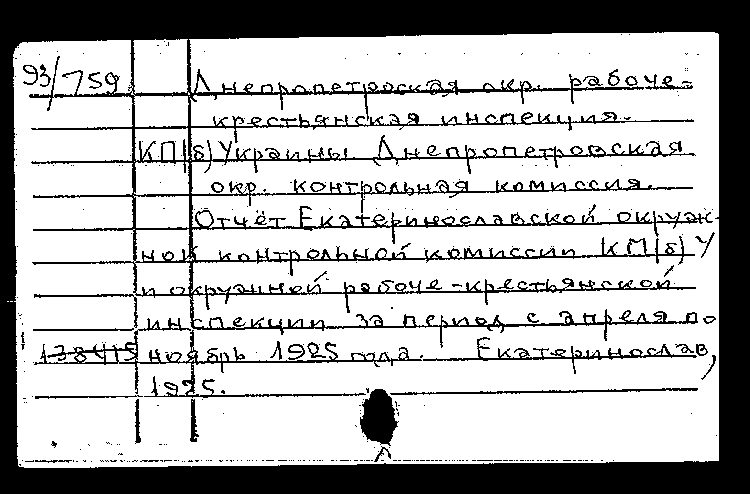 93/759 Днепропетроская окр. рабоче-
крестьянская инспекция.
КП(б)Украины. Днепропетровская
окр. контрольная комиссия.
Отчёт Екатеринославской окруж-
ной контрольной комиссии КП(б)У
и окружной рабоче-крестьянской
инспекции за период с апреля по
138415 ноябрь 1925 года. Екатеринослав,
1925.